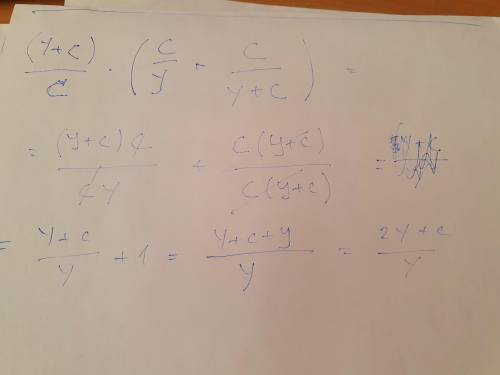 (y+c)/c · (c/y + c/(y+c)) =
= (y+c)c/cy + c(y+c)/c(y+c) =
= y+c/y + 1 = y+c+y/y = 2y+c/y